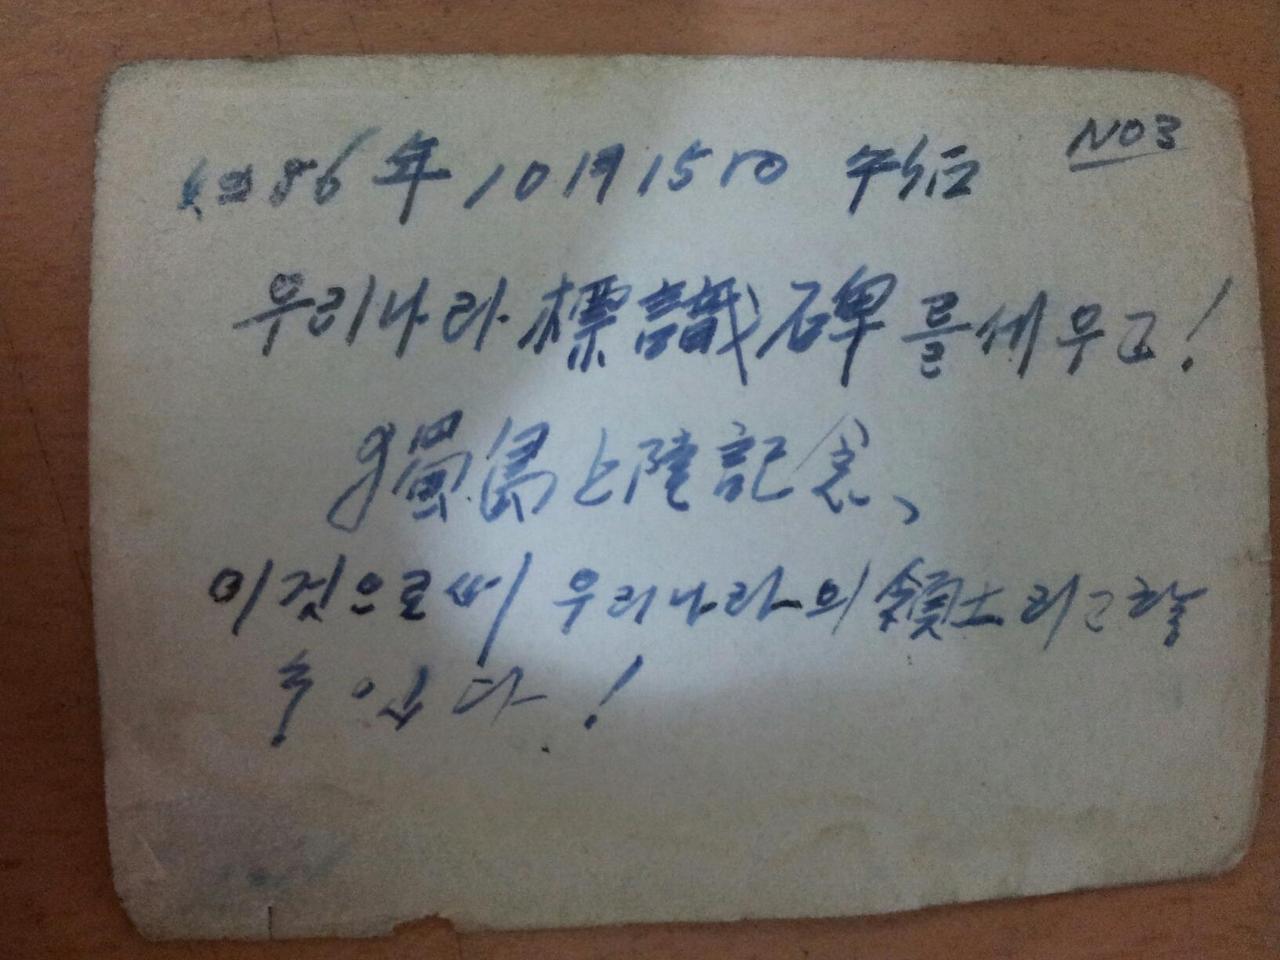 NO3
4286年 10月 15日 午後
우리나라 標識碑를세우고!
獨島上陸記念、
이것으로써 우리나라의 領土라고할
수있다!